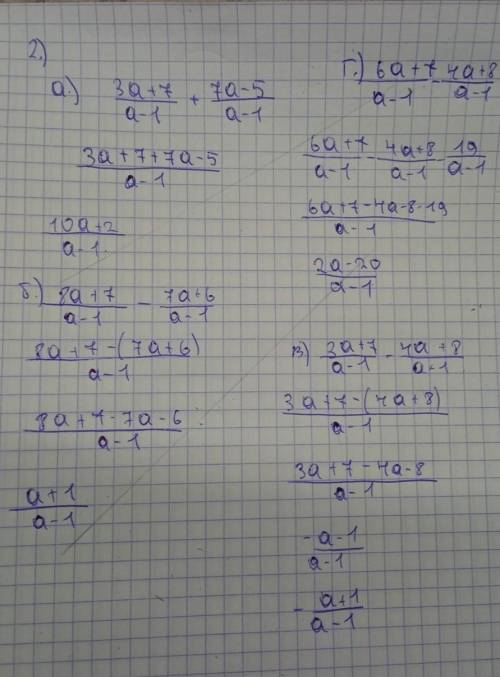 2.)
а.) (3a+7)/(a-1) + (7a-5)/(a-1)
(3a+7+7a-5)/(a-1)
(10a+2)/(a-1)
б.) (8a+7)/(a-1) - (7a+6)/(a-1)
(8a+7-(7a+6))/(a-1)
(8a+7-7a-6)/(a-1)
(a+1)/(a-1)
г.) (6a+7)/(a-1) - (4a+8)/(a-1)
(6a+7)/(a-1) - (4a+8)/(a-1) - 19/(a-1)
(6a+7-4a-8-19)/(a-1)
(2a-20)/(a-1)
в) (3a+7)/(a-1) - (4a+8)/(a-1)
(3a+7-(4a+8))/(a-1)
(3a+7-4a-8)/(a-1)
(-a-1)/(a-1)
- (a+1)/(a-1)